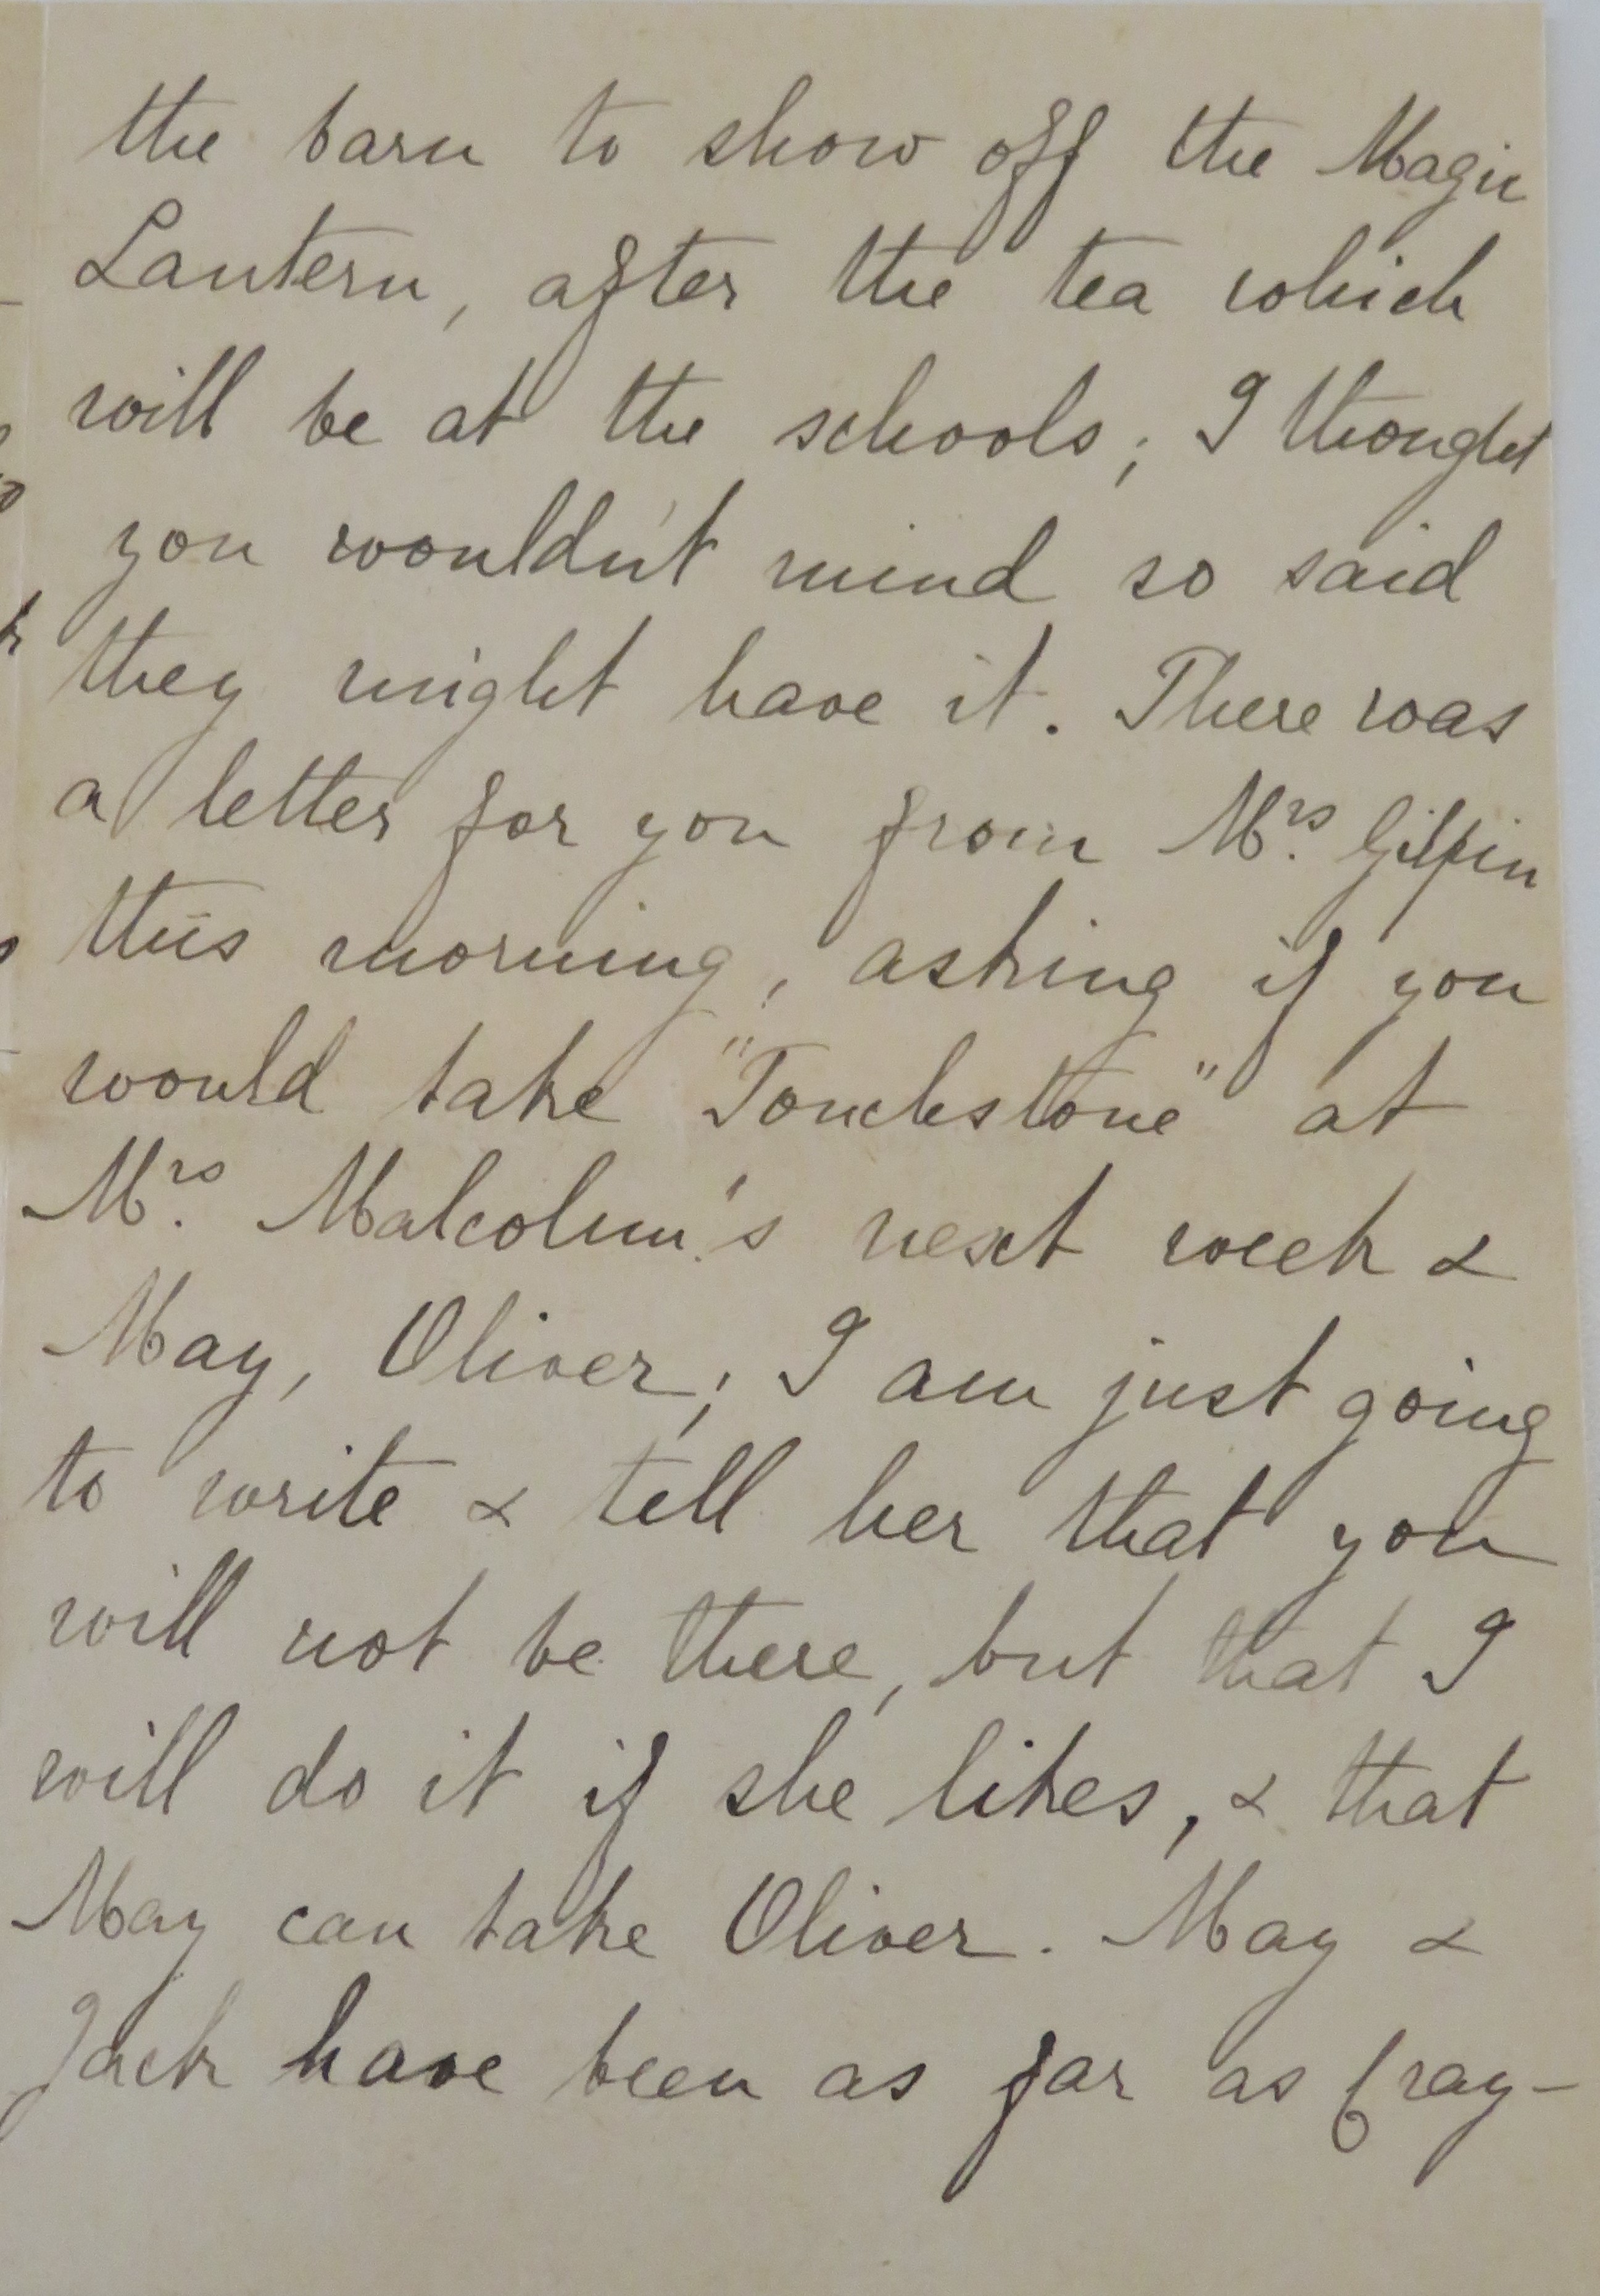 the barn to show off the Magic
Lantern, after the tea which
will be at the schools; I thought
you wouldn't mind so said
they might have it. There was
a letter for you from Mrs. Gilpin
this morning, asking if you
would take "Touchstone" at
Mrs. Malcolm's next week &
May, Oliver; I am just going
to write & tell her that you
will not be there, but that I
will do it if she likes, & that
May can take Oliver. May &
Jack have been as far as Cray-